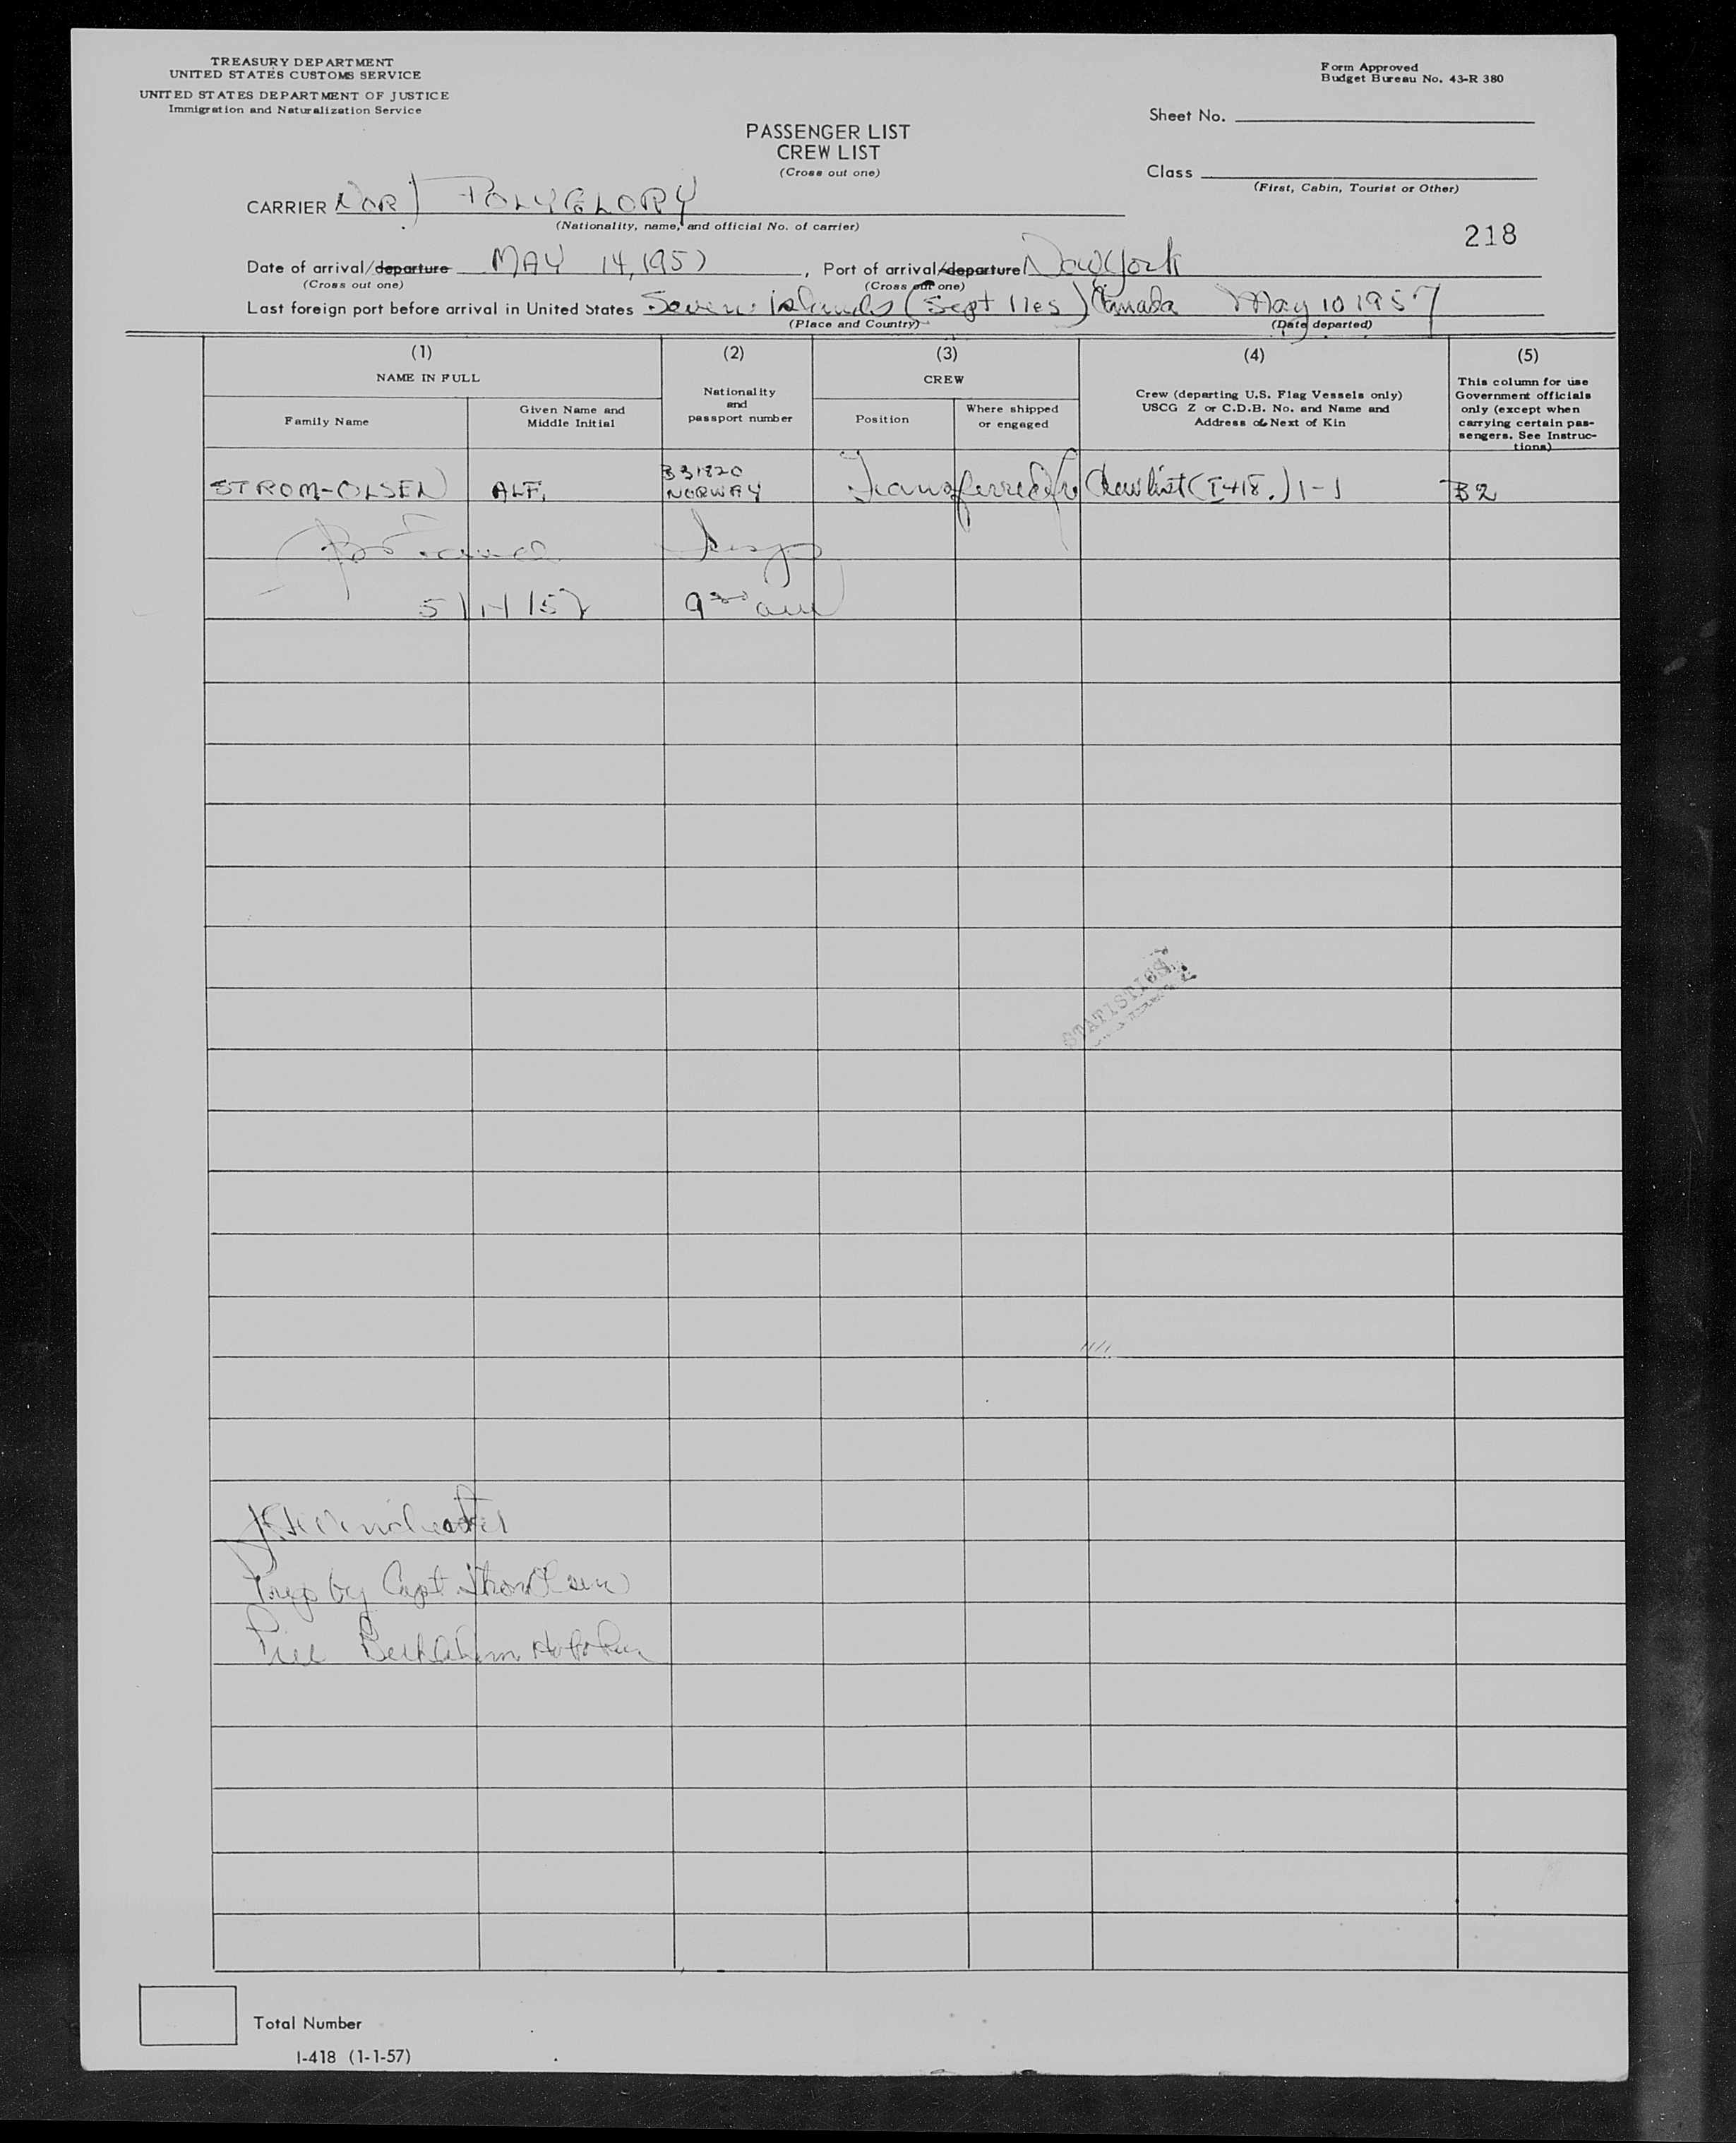 TREASURY DEPARTMENT
UNITED STATES CUSTOMS SERVICE
UNITED STATES DEPARTMENT OF JUSTICE
Immigration and Naturalization Service
Form Approved
Budget Bureau No. 43-R 380
Sheet No.
PASSENGER LIST
CREW LIST
(Cross out one)
Class
(First, Cabin, Tourist or Other)
CARRIER NOR POLYGLORY
(Nationality, name, and official No. of carrier)
218
Date of arrival/departure MAY 14, 1957, Port of arrival/departure New York
(Cross out one) (Cross out one)
Last foreign port before arrival in United States Seven Islands (Sept Iles) Canada May 10 1957
(Place and Country) (Date departed)
(1) (2) (3) (4) (5)
NAME IN FULL
Family Name
Given Name and
Middle Initial
Nationality
and
passport number
CREW
Position
Where shipped
or engaged
Crew (departing U.S. Flag Vessels only)
USCG Z or C.D.B. No. and Name and
Address of Next of Kin
This column for use
Government officials
only (except when
carrying certain pas-
sengers. See Instruc-
tions)
B31820
STROM-OLSEN ALF. NORWAY Transferred fr Crew list (I-418.) 1-1 B2
Insp
5/14/57 9 30 am
STATISTICS
by Capt Strom Olsen
Pier Bethlehem Hoboken
Total Number
I-418 (1-1-57)